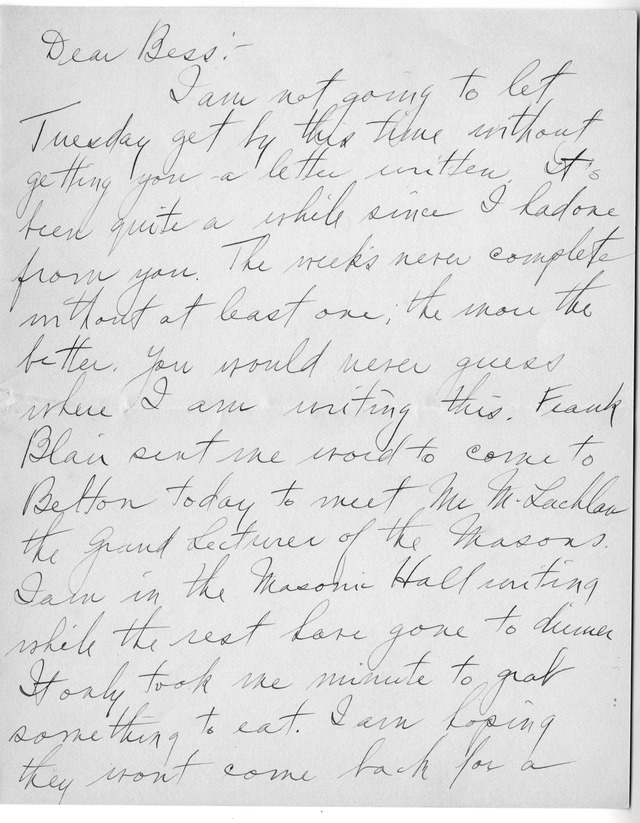 Dear Bess:-
I am not going to let
Tuesday get by this time without
getting you a letter written. It's
been quite a while since I had one
from you. The week's never complete
without at least one, the more the
better. You would never guess
where I am writing this. Frank
Blair sent me word to come to
Belton today to meet Mr McLachlan
the Grand Lecturer of the Masons.
I am in the Masonic Hall writing
while the rest have gone to dinner
It only took me minute to grab
something to eat. I am hoping
they wont come back for a